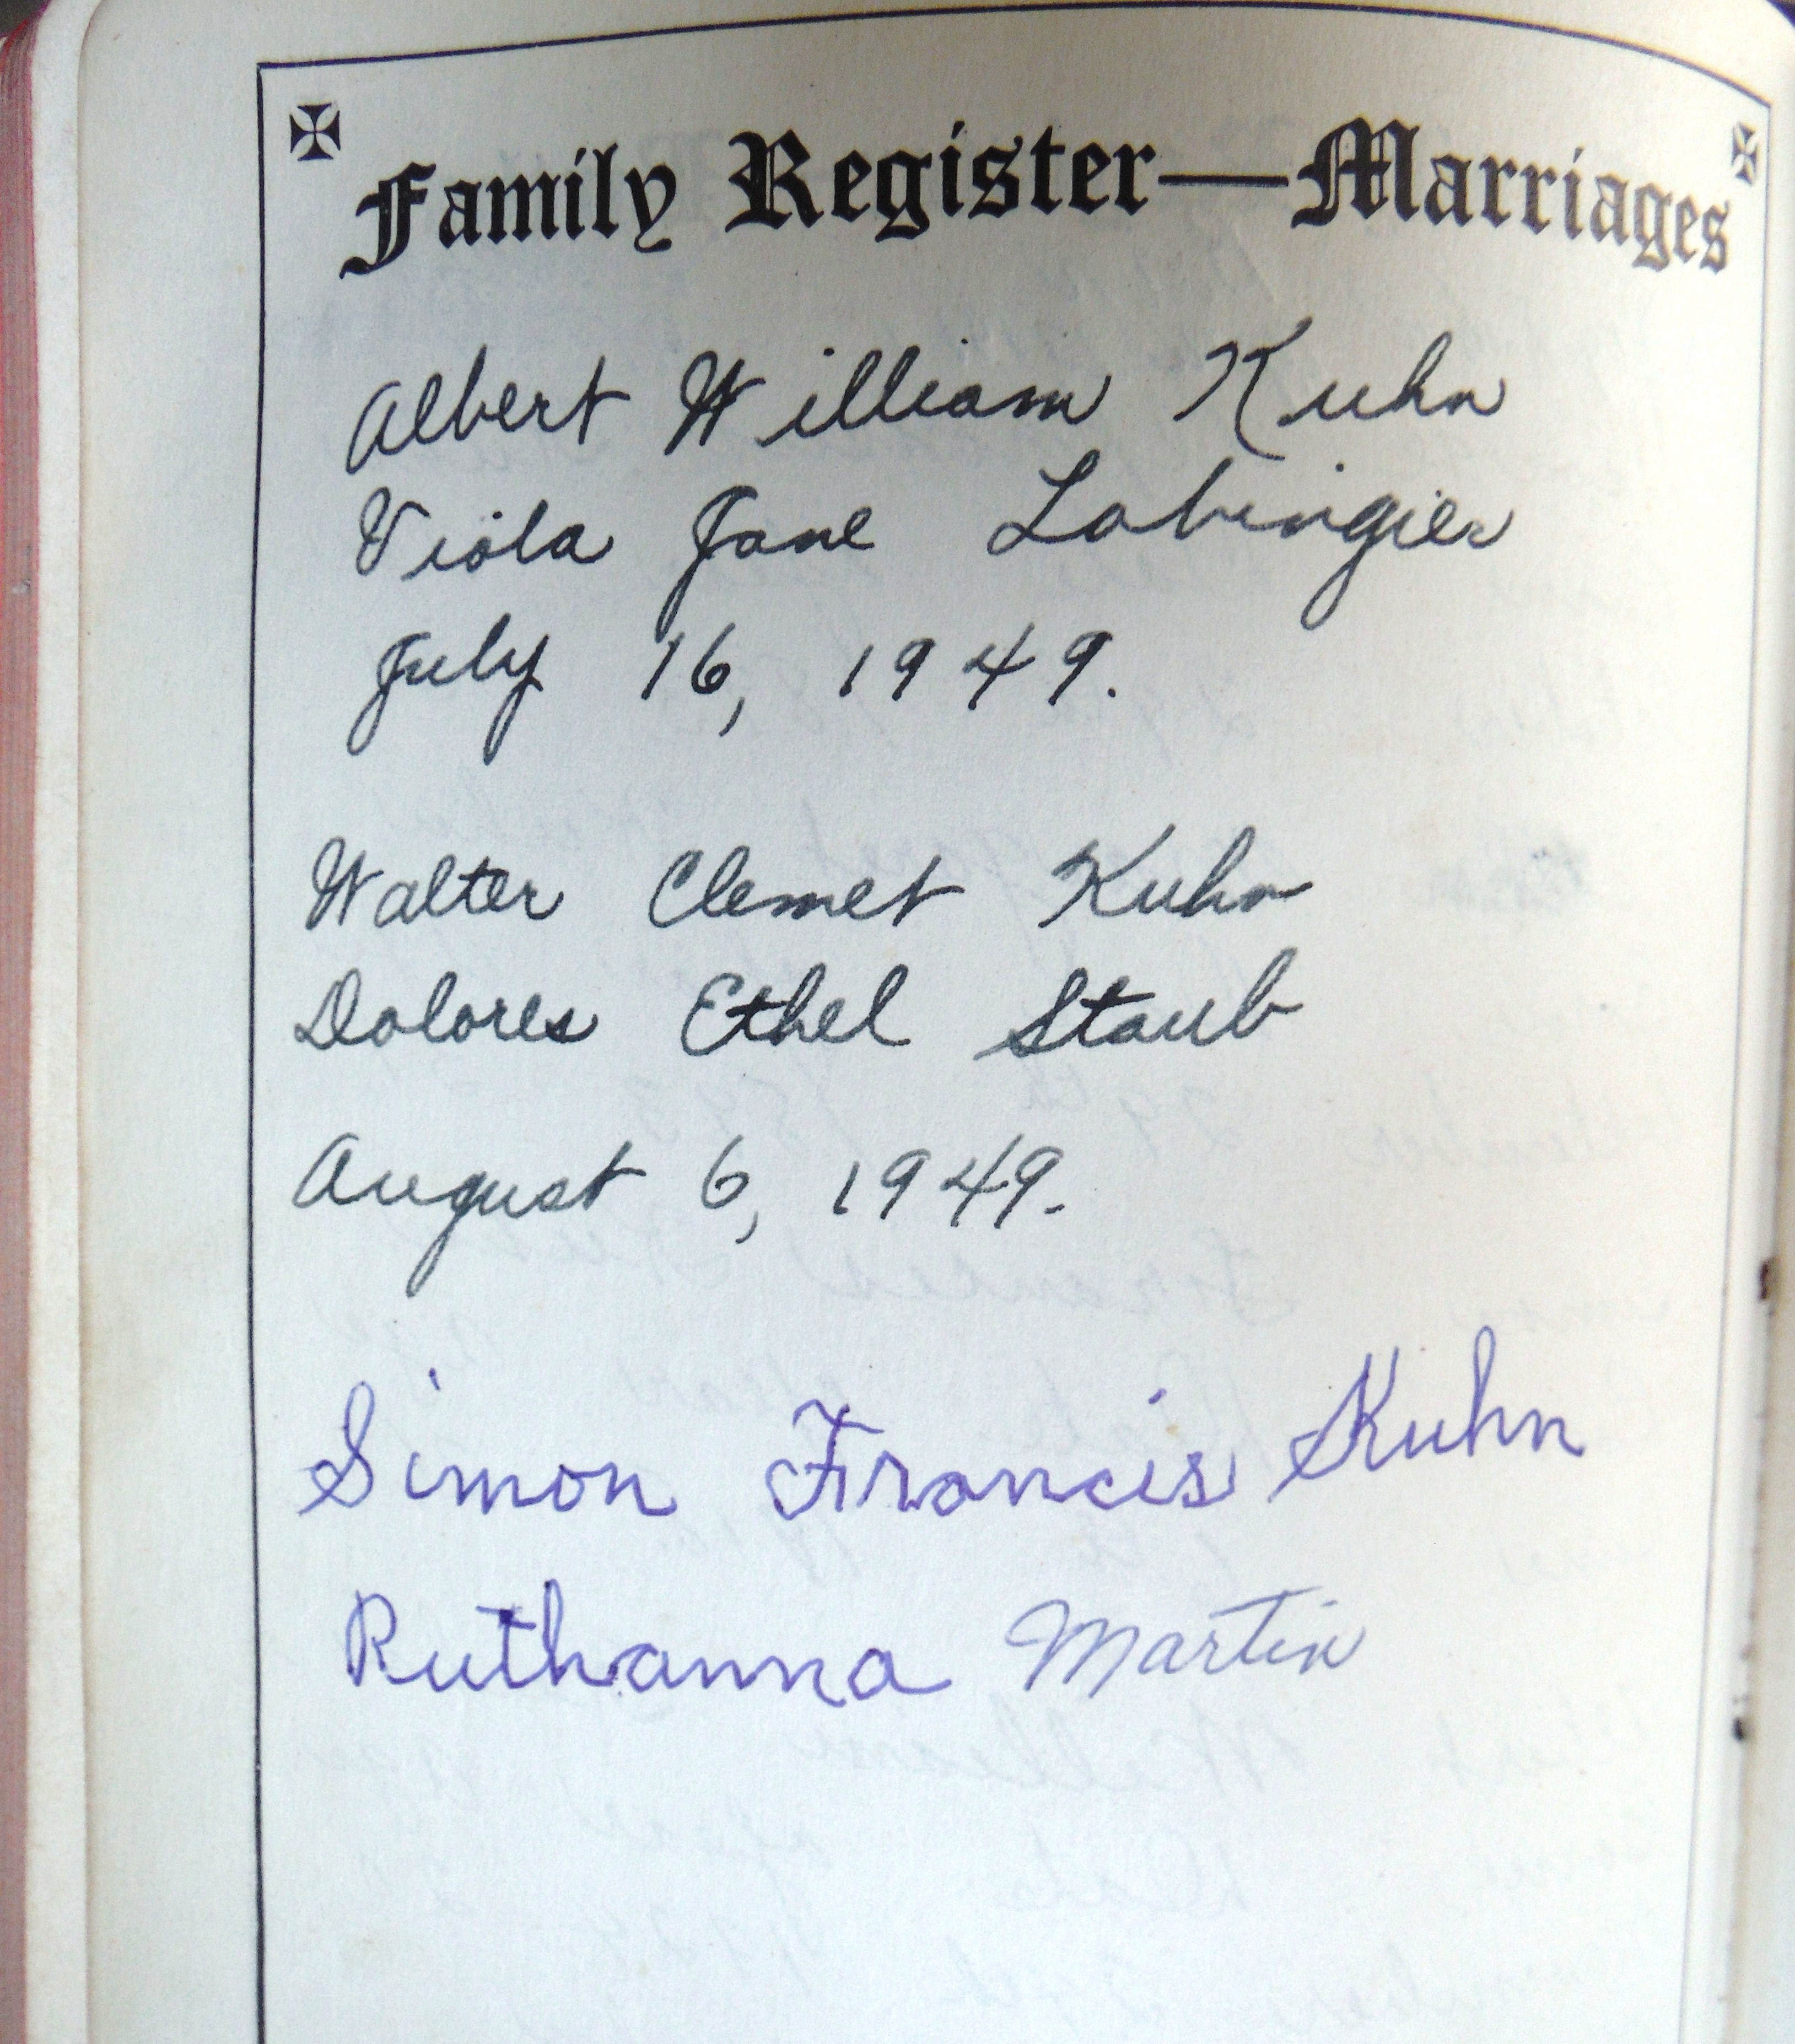 Family Register—Marriages
Albert William Kuhn
Viola Jane Lobingier
July 16, 1949.
Walter Clemet Kuhn
Dolores Ethel Staub
August 6, 1949.
Simon Francis Kuhn
Ruthanna Martin